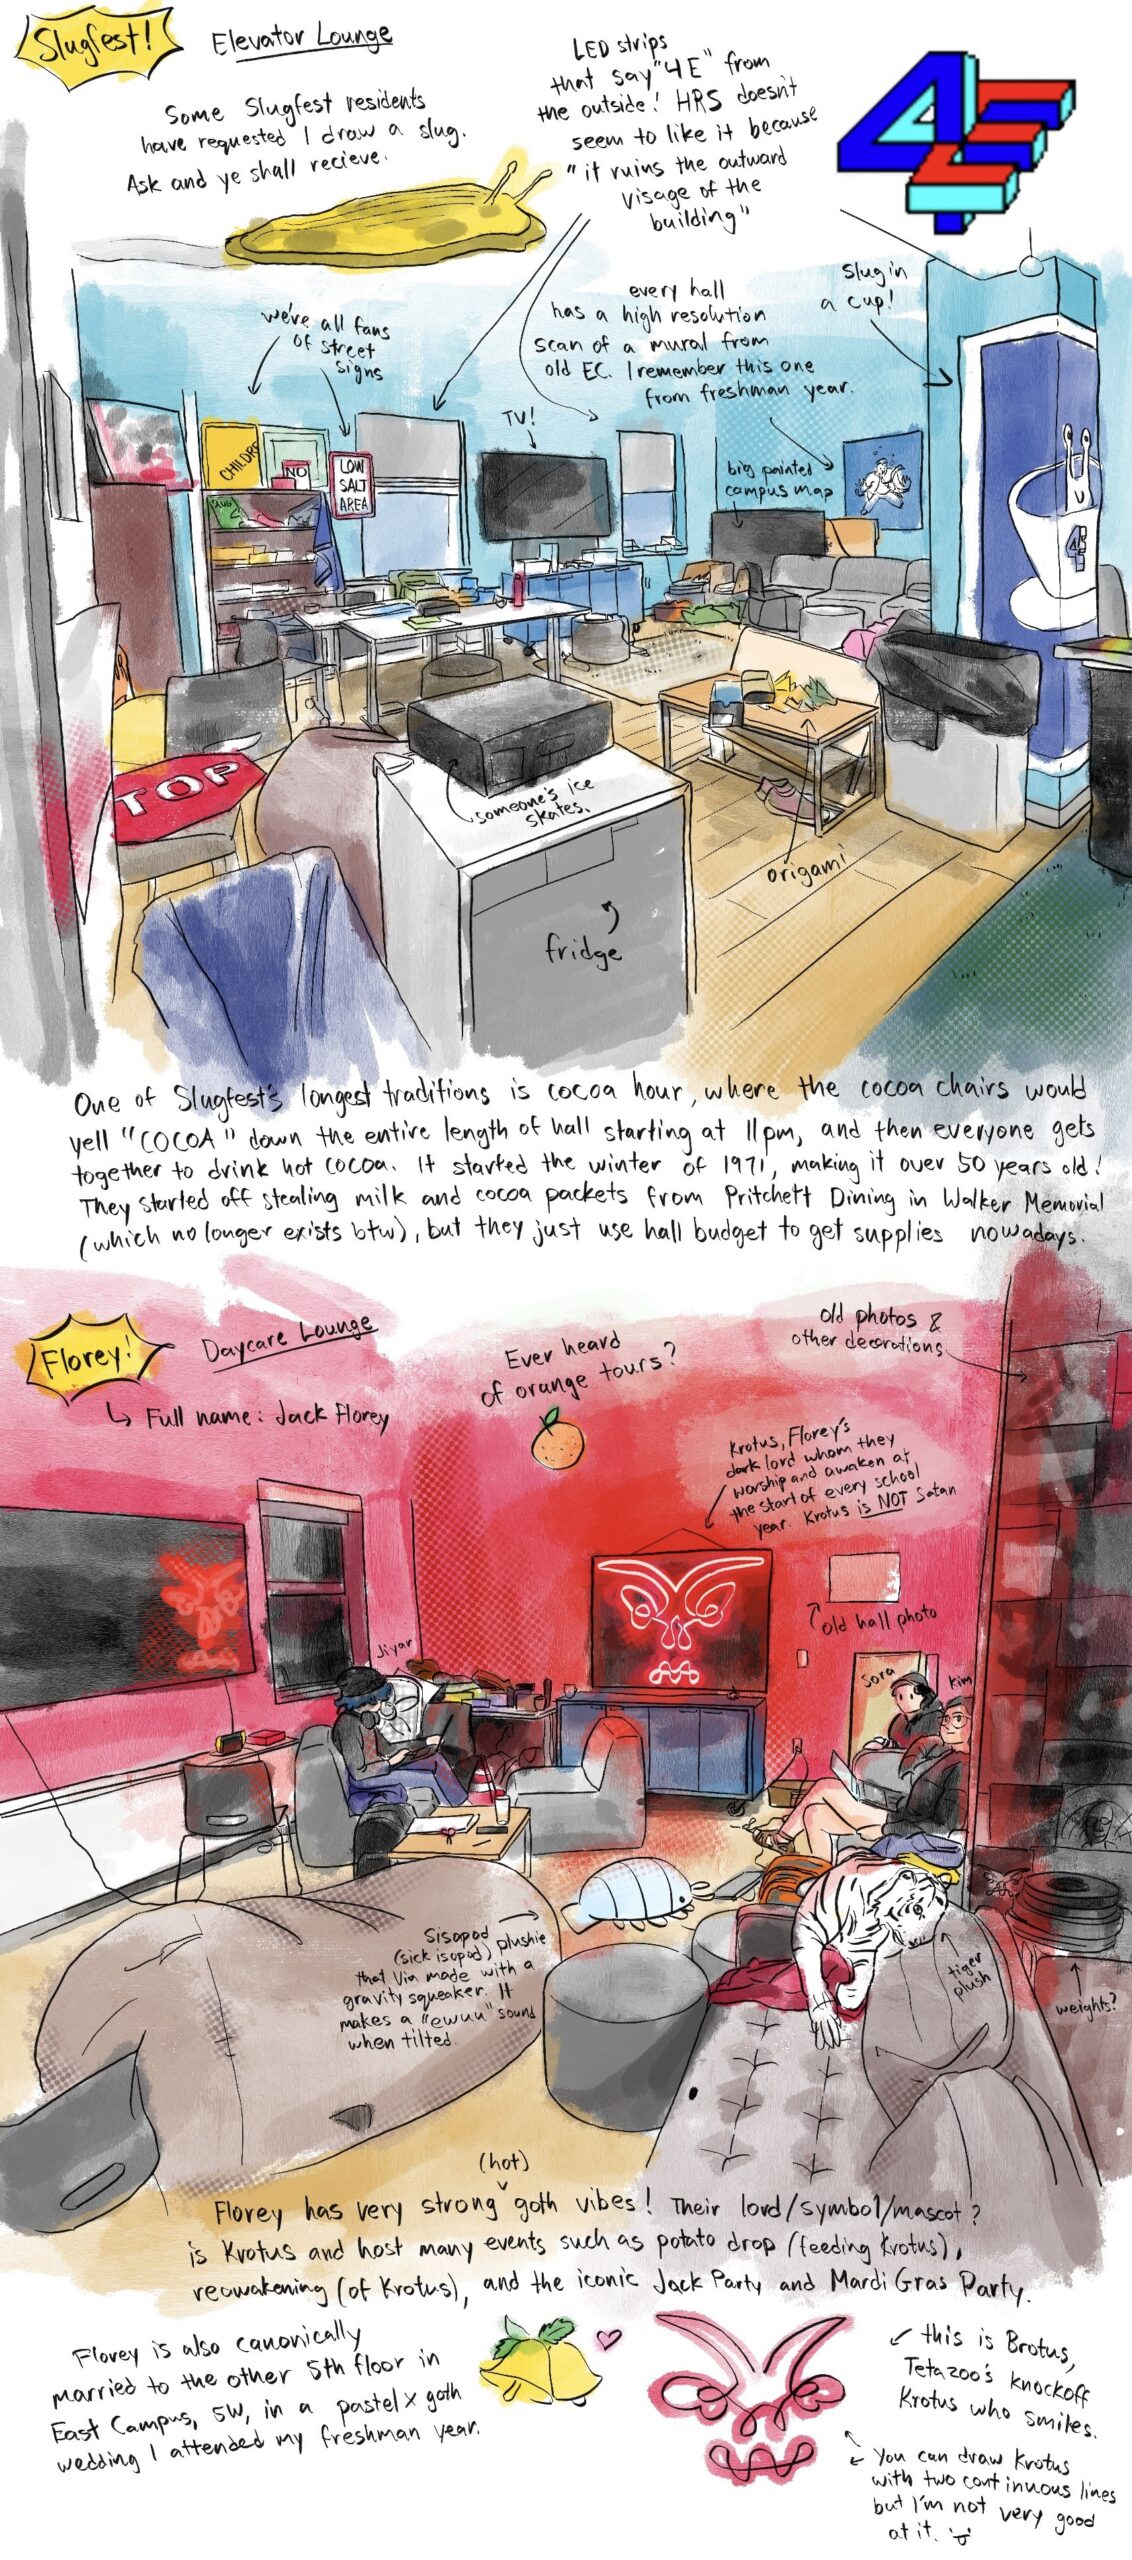 Slugfest!
Elevator Lounge
Some Slugfest residents
have requested I draw a slug.
Ask and ye shall recieve.
LED strips
that say "4E" from
the outside! HRS doesn't
seem to like it because
"it ruins the outward
visage of the
building"
4E
we're all fans
of street
signs
every hall
has a high resolution
scan of a mural from
old EC. I remember this one
from freshman year.
slug in
a cup!
TV!
big painted
campus map
CHILDRE
NO
SLUG
LOW
SALT
AREA
4E
TOP
someone's ice
skates.
origami
fridge
One of Slugfest's longest traditions is cocoa hour, where the cocoa chairs would
yell "COCOA" down the entire length of hall starting at 11pm, and then everyone gets
together to drink hot cocoa. It started the winter of 1971, making it over 50 years old!
They started off stealing milk and cocoa packets from Pritchett Dining in Walker Memorial
(which no longer exists btw), but they just use hall budget to get supplies nowadays.
Florey!
Daycare Lounge
Full name: Jack Florey
Ever heard
of orange tours?
old photos &
other decorations
Krotus, Florey's
dark lord whom they
worship and awaken at
the start of every school
year. Krotus is NOT Satan
old hall photo
Jiyar
Sora
Kim
Sisopod
(sick isopod) plushie
that Via made with a
gravity squeaker. It
makes a "ewuu" sound
when tilted.
tiger
plush
weights?
(hot)
Florey has very strong goth vibes! Their lord/symbol/mascot?
is Krotus and host many events such as potato drop (feeding Krotus),
reawakening (of Krotus), and the iconic Jack Party and Mardi Gras Party.
Florey is also canonically
married to the other 5th floor in
East Campus, 5W, in a pastel x goth
wedding I attended my freshman year.
this is Brotus,
Tetazoo's knockoff
Krotus who smiles.
You can draw Krotus
with two continuous lines
but I'm not very good
at it.